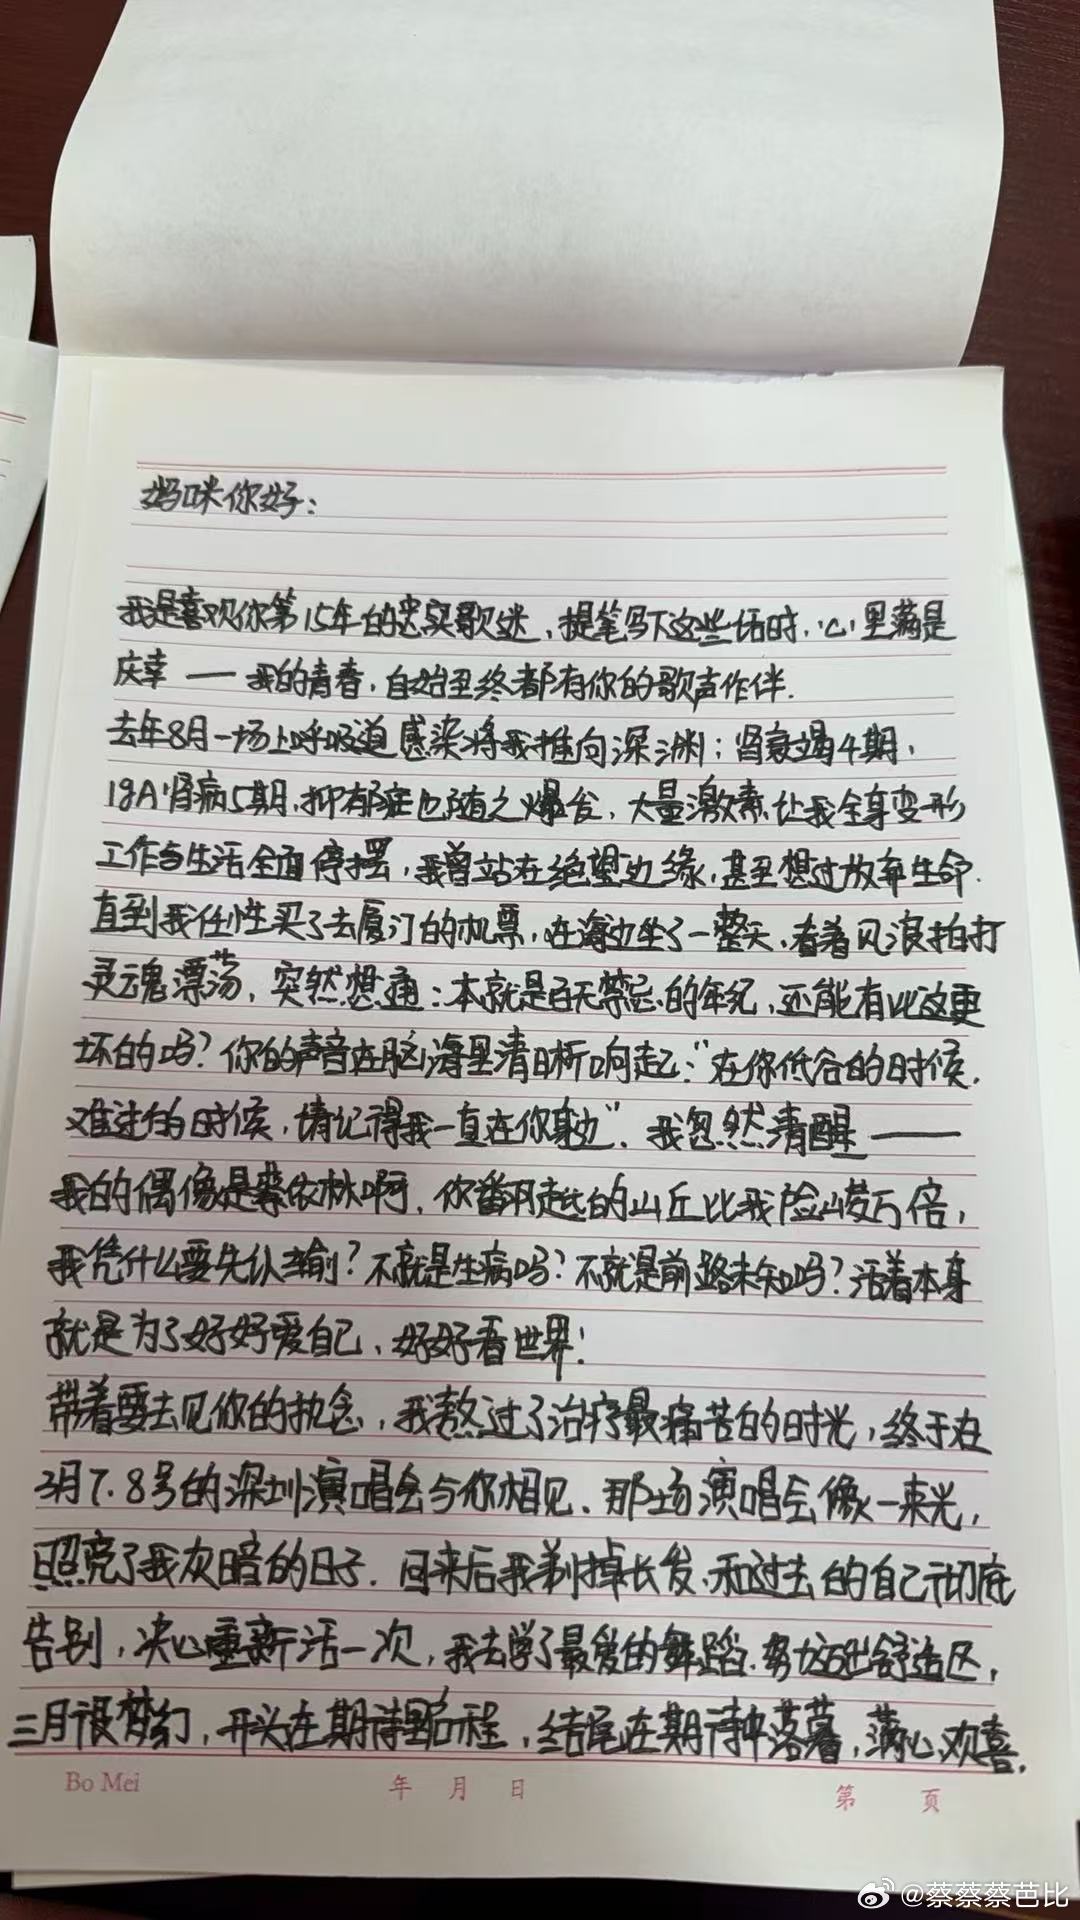 妈咪你好：
我是喜欢你第15年的忠实歌迷，提笔写下这些话时，心里满是
庆幸——我的青春，自始至终都有你的歌声作伴.
去年8月一场上呼吸道感染将我推向深渊；肾衰竭4期，
IgA肾病5期，抑郁症也随之爆发，大量激素让我全身变形
工作与生活全面停摆，我曾站在绝望边缘，甚至想过放弃生命.
直到我任性买了去厦门的机票，在海边坐了一整天，看着风浪拍打
灵魂漂荡，突然想通：本就是百无禁忌的年纪，还能有比这更
坏的吗？你的声音在脑海里清晰响起：“在你低谷的时候，
难过的时候，请记得我一直在你身边”。我忽然清醒——
我的偶像是蔡依林啊，你翻越的山丘比我险峻万倍，
我凭什么要先认输？不就是生病吗？不就是前路未知吗？活着本身
就是为了好好爱自己，好好看世界！
带着要去见你的执念，我熬过了治疗最痛苦的时光，终于在
3月7.8号的深圳演唱会与你相见，那场演唱会像一束光，
照亮了我灰暗的日子。回来后我剃掉长发，和过去的自己彻底
告别，决心重新活一次，我去学了最爱的舞蹈，努力迈出舒适区，
三月很梦幻，开头在期待里启程，结尾在期待中落幕，满心欢喜.
Bo Mei 年 月 日 第 页
@蔡蔡蔡芭比